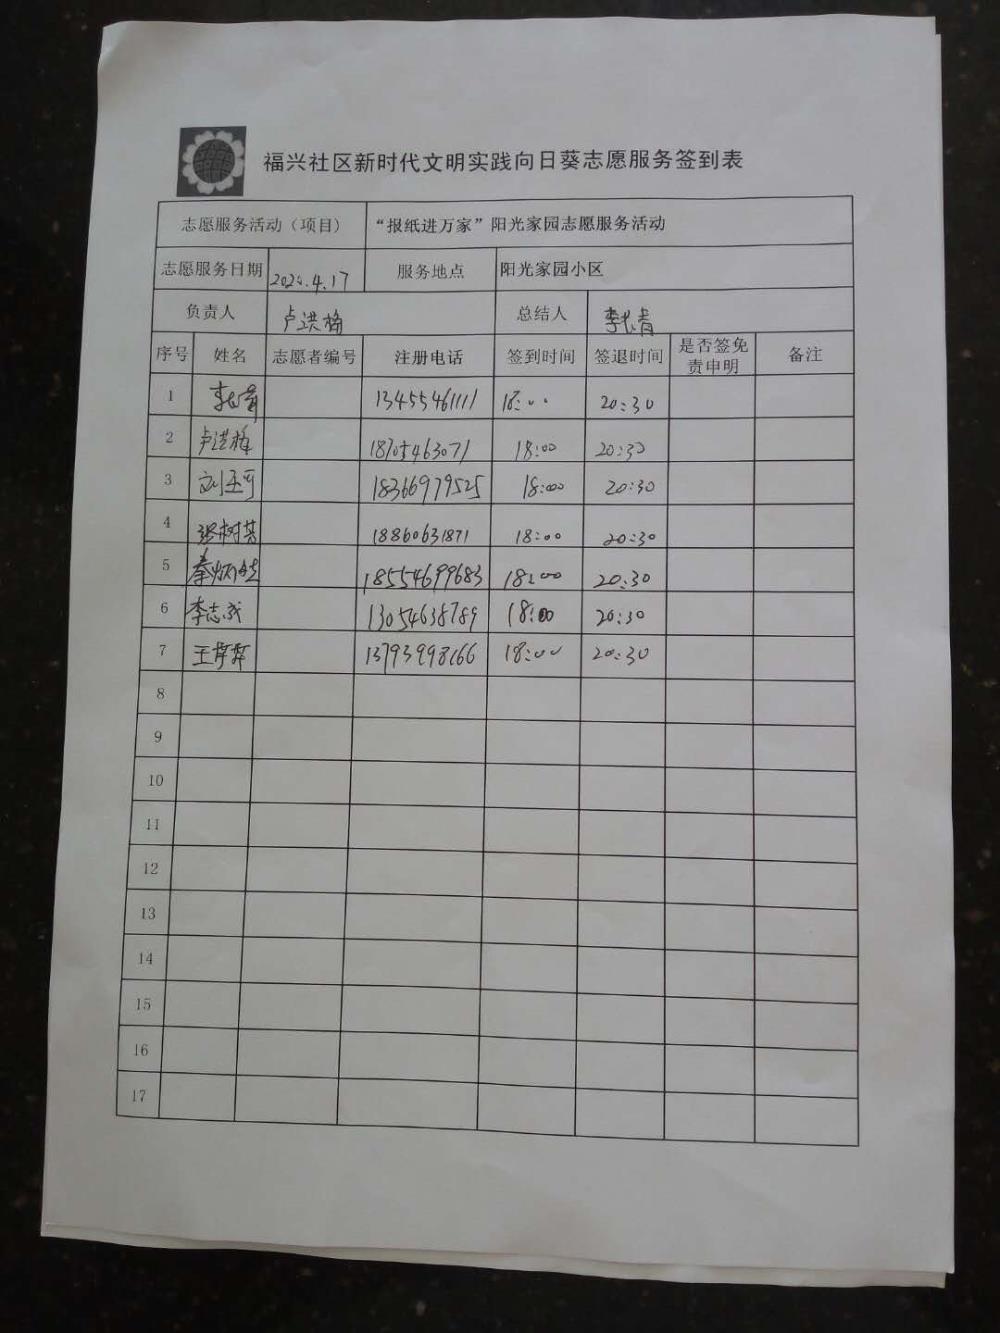 福兴社区新时代文明实践向日葵志愿服务签到表
志愿服务活动（项目） “报纸进万家”阳光家园志愿服务活动
志愿服务日期 服务地点 阳光家园小区
负责人 卢洪梅 总结人 李长青
序号 姓名 志愿者编号 注册电话 签到时间 签退时间 是否签免责申明 备注
1 李长青 13455461111 18:00 20:30
2 卢洪梅 18:00 20:30
3 18366979525 18:00 20:30
4 18860631871 18:00 20:30
5 18554699683 18:00 20:30
6 李志成 13054638789 18:00 20:30
7 13793998166 18:00 20:30
8
9
10
11
12
13
14
15
16
17